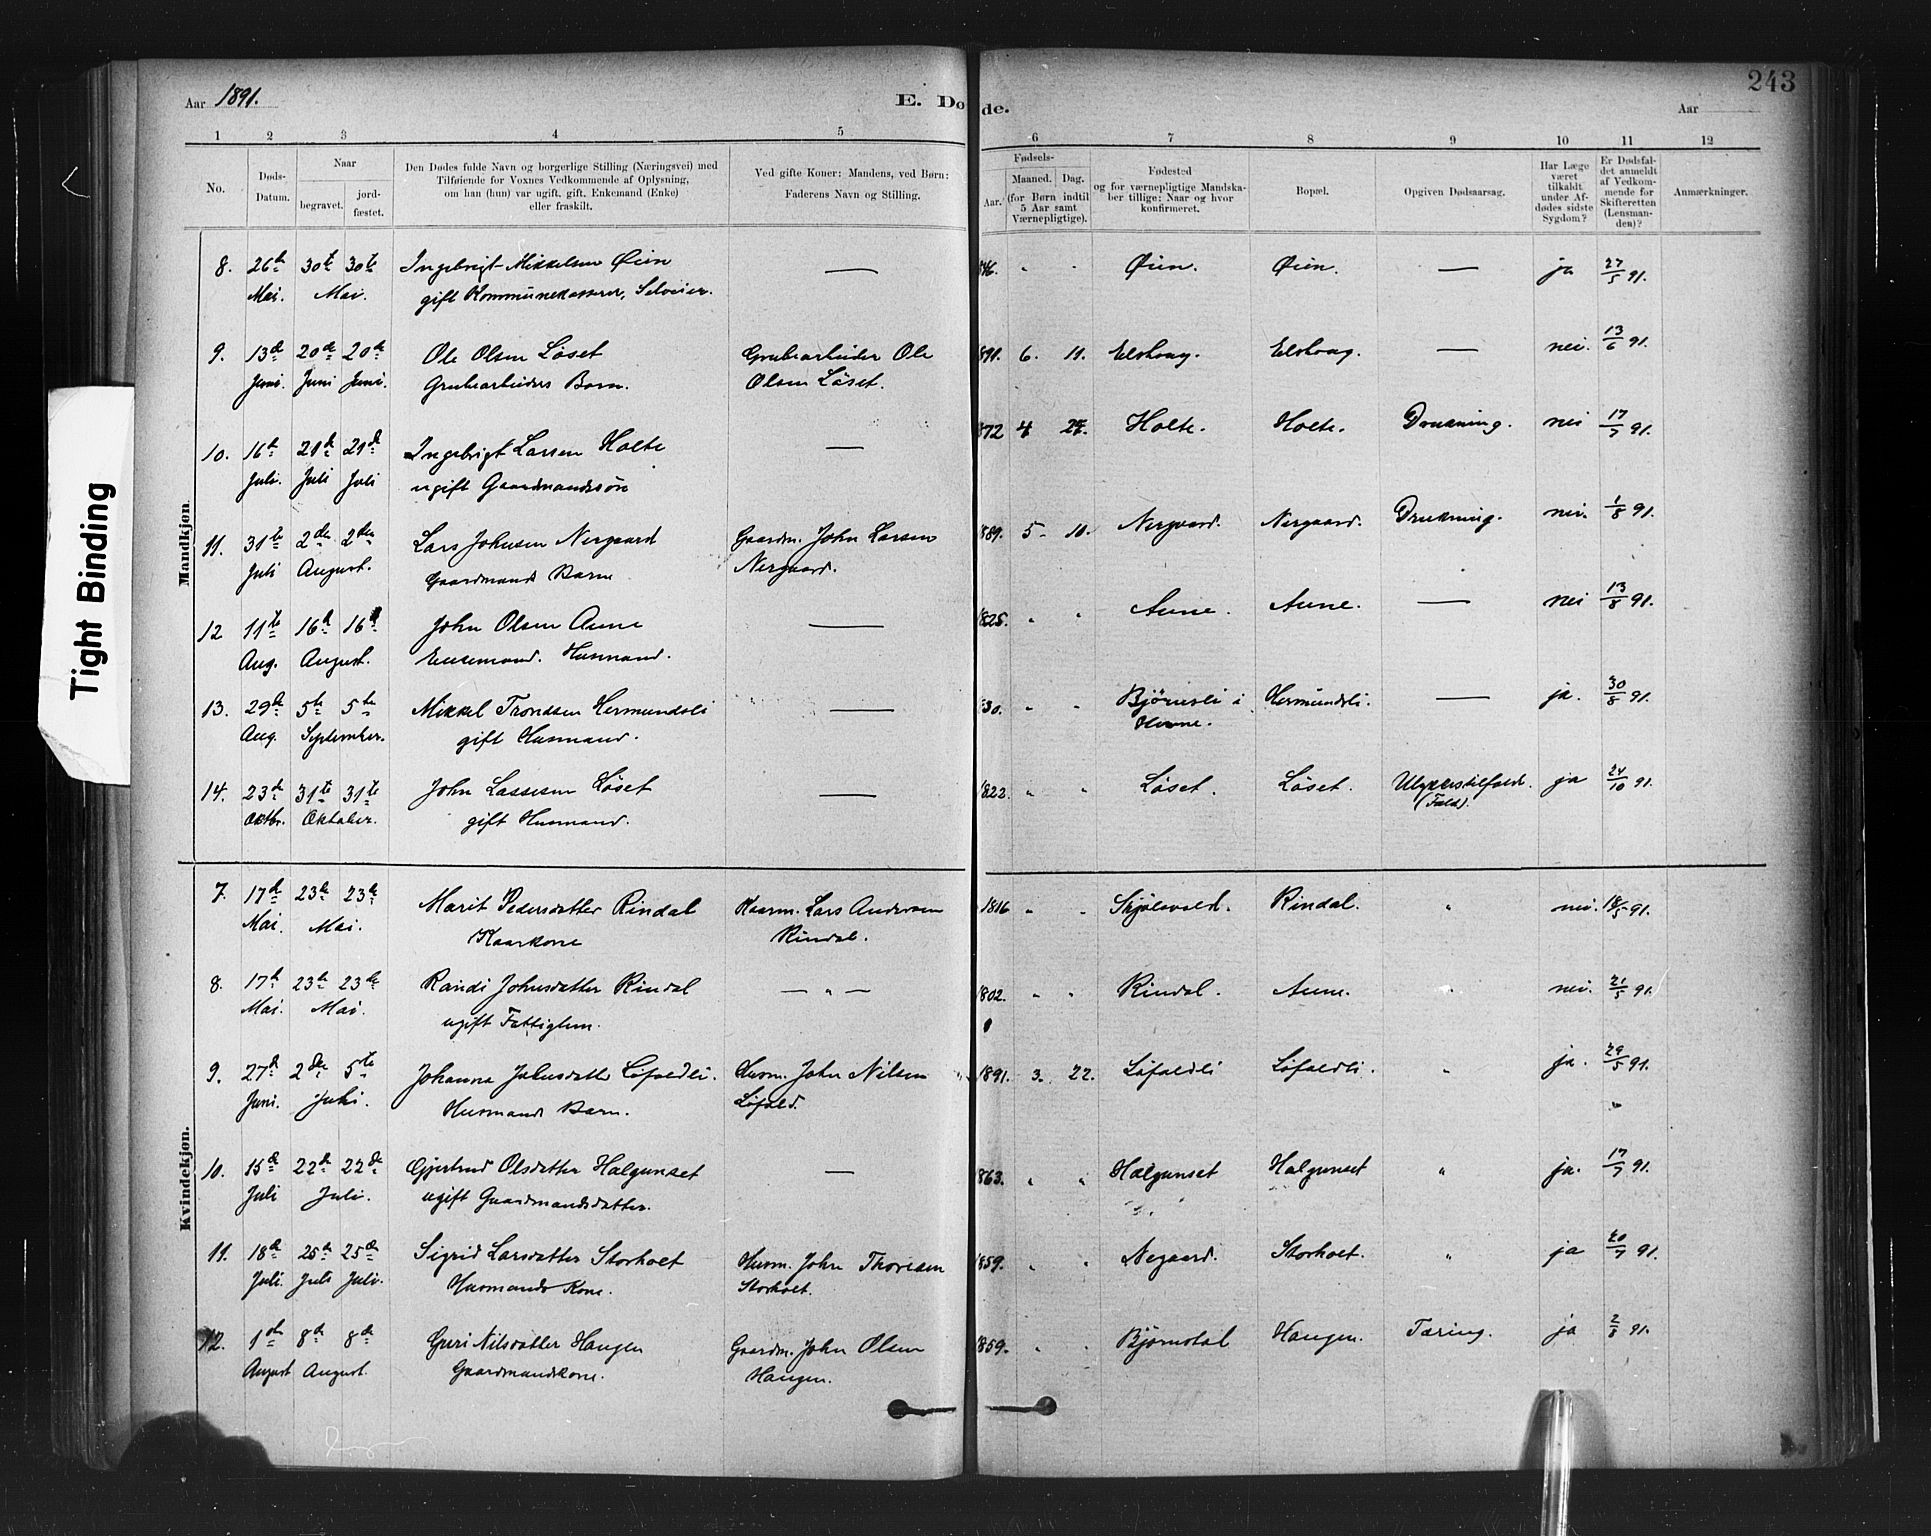 Aar 1891.
E. Døde.
Aar
243
1 2 3 4 5 6 7 8 9 10 11 12
No.
Døds-Datum.
Naar
begravet.
jord-fæstet.
Den Dødes fulde Navn og borgerlige Stilling (Næringsvei) med
Tilføiende for Voxnes Vedkommende af Oplysning,
om han (hun) var ugift, gift, Enkemand (Enke)
eller fraskilt.
Ved gifte Koner: Mandens, ved Børn:
Faderens Navn og Stilling.
Fødsels-
Aar. Maaned. Dag.
(for Børn indtil
5 Aar samt
Værnepligtige).
Fødested
og for værnepligtige Mandska-
ber tillige: Naar og hvor
konfirmeret.
Bopæl.
Opgiven Dødsaarsag.
Har Læge
været
tilkaldt
under Af-
dødes sidste
Sygdom?
Er Dødsfal-
det anmeldt
af Vedkom-
mende for
Skifteretten
(Lensman-
den)?
Anmærkninger.
Tight Binding
Mandkjøn.
8. 26de 30te 30te Ingebrigt Mikkelsen Øien — 846. " " Øien. Øien. — ja 27/5 91.
Mai. Mai. gift Kommunekasserer, Selveier.
9. 13de 20de 20de Ole Olsen Løset Grubearbeider Ole 891. 6. 11. Elshaug. Elshaug. — nei. 13/6 91.
Juni. Juni Juni. Grubearbeiders Barn. Olsen Løset.
10. 16de 21de 21de Ingebrigt Larsen Holte — 872 4 27. Holte. Holte. Drukning. nei 17/7 91.
Juli. Juli Juli ugift Gaardmandssøn
11. 31te 2den 2den Lars Johnsen Nergaard Gaardm. John Larsen 889. 5. 10. Nergaard. Nergaard. Drukning. nei. 1/8 91.
Juli August. Gaardmands Barn Nergaard.
12 11te 16de 16de John Olsen Aune — 1825. " " Aune. Aune. — nei 13/8 91.
Aug. August. Enkemand. Husmand.
13. 29de 5te 5te Mikkel Trondsen Hermundsli — 830. " " Bjørnsli i Hermundsli. — ja. 30/8 91.
Aug. September. gift Husmand. Hevne.
14. 23de 31te 31te John Lassesen Løset — 1822. " " Løset. Løset. Ulykkestilfælde. ja 24/10 91.
Oktbr. Oktober. gift Husmand. (Fald).
Kvindekjøn.
7. 17de 23de 23de Marit Pedersdatter Rindal Kaarm. Lars Andersen 1816 " " Skjølsvold. Rindal. " nei. 18/5 91.
Mai. Mai. Kaarkone Rindal.
8. 17de 23de 23de Randi Johnsdatter Rindal — " — 1802. " " Rindal. Aune. " nei. 21/5 91.
Mai. Mai. ugift Fattiglem.
9. 27de 2den 5te Johanna Johnsdatter Løfaldli. Husm. John Nilsen 1891. 3. 22. Løfaldli Løfaldli. " ja. 29/5 91.
Juni. Juli. Husmands Barn. Løfald.
10. 15de 22de 22de Gjertrud Olsdatter Halgunset — 863. " " Halgunset Halgunset " ja. 17/7 91.
Juli Juli. ugift Gaardmandsdatter.
11. 18de 25de 25de Sigrid Larsdatter Storholt Husm. John Thoresen 859. " " Negaard. Storholt. " ja 20/7 91.
Juli. Juli Juli. Husmands Kone. Storholt.
12. 1ste 8de 8de Guri Nilsdatter Haugen Gaardm. John Olsen 859. " " Bjørnstal Haugen. Tæring. ja 2/8 91.
August August. Gaardmandskone. Haugen.